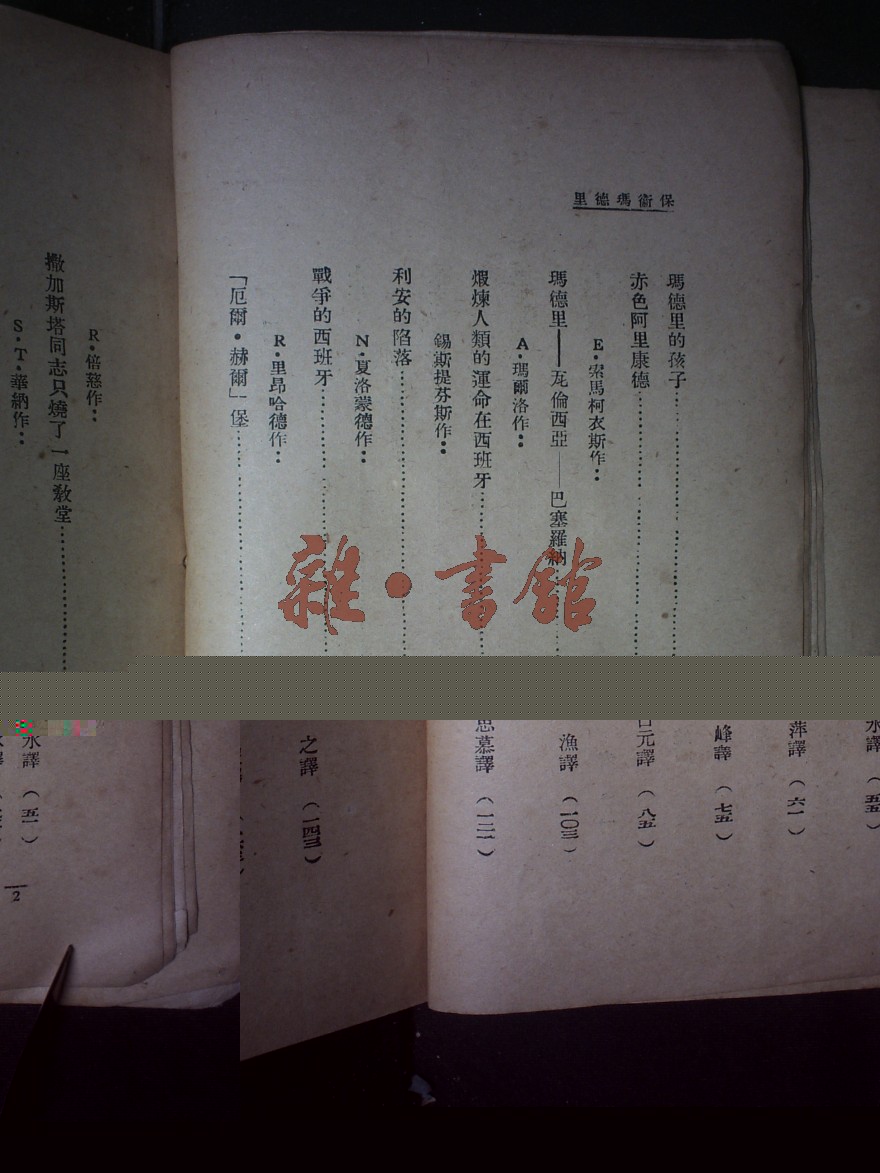 保衛瑪德里
瑪德里的孩子
赤色阿里康德
E·索馬柯衣斯作：
瑪德里——瓦倫西亞——巴塞羅納
A·瑪爾洛作：
煅煉人類的運命在西班牙
錫斯提芬斯作：
利安的陷落
N·夏洛蒙德作：
戰爭的西班牙
R·里昂哈德作：
「厄爾·赫爾」堡
R·倍慈作：
撒加斯塔同志只燒了一座教堂
S·T·華納作：
雜·書館
永譯（五五）
萍譯（六一）
峰譯（七五）
元譯（八五）
漁譯（一〇三）
思慕譯（一二一）
之譯（一四三）
永譯（五一）
2